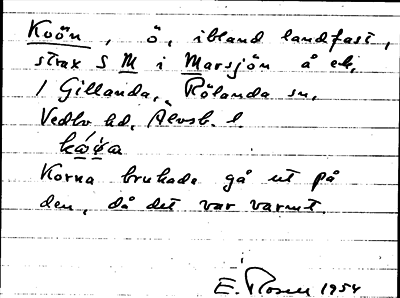 Koön, ö, ibland landfast,
strax S M i Marsjön å ek,
/ Gillanda, Rölanda sn,
Vedbo hd, Älvsb. l.
Korna brukade gå ut på
den, då det var varmt.
E. Rosell 1954